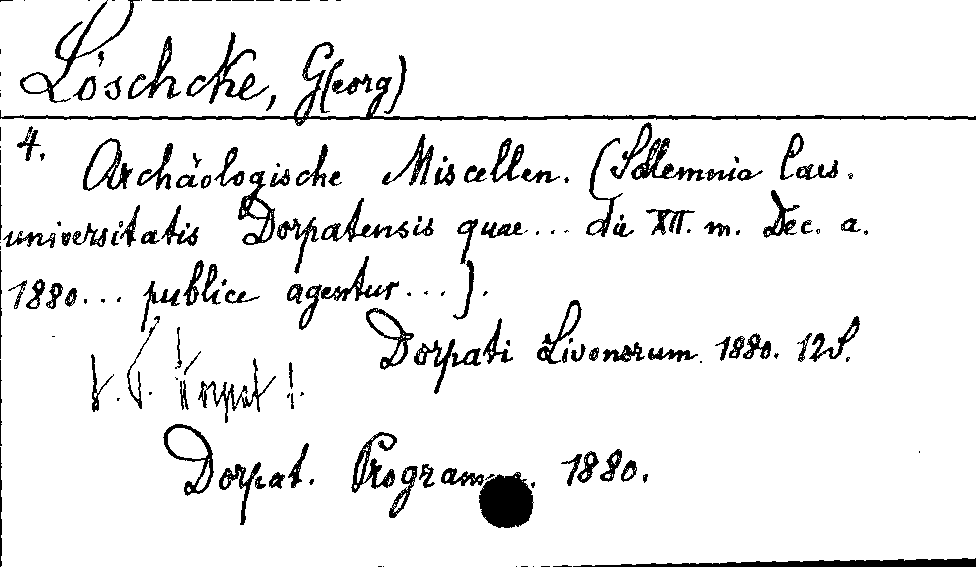 Löschcke, G(eorg)
4.
Archäologische Miscellen. (Sollemnia Caes.
universitatis Dorpatensis quae... die XII. m. Dec. a.
1880... publice agentur...).
Dorpati Livonorum 1880. 12S.
Dorpat. Programme. 1880.